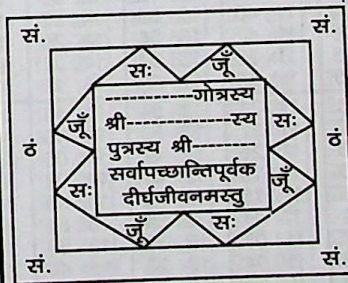 सं. सं.
सः जूँ
------------गोत्रस्य
जूँ श्री-------------स्य सः
ठं पुत्रस्य श्री--------- ठं
सः सर्वापच्छान्तिपूर्वक जूँ
दीर्घजीवनमस्तु
जूँ सः
सं. सं.